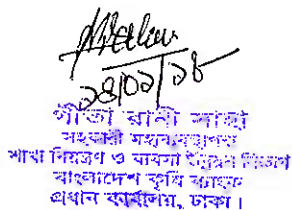 ২৪/০২/১৮
গীতা রানী সাহা
সহকারী মহাব্যবস্থাপক
শাখা নিয়ন্ত্রণ ও ব্যবসা উন্নয়ন বিভাগ
বাংলাদেশ কৃষি ব্যাংক
প্রধান কার্যালয়, ঢাকা।